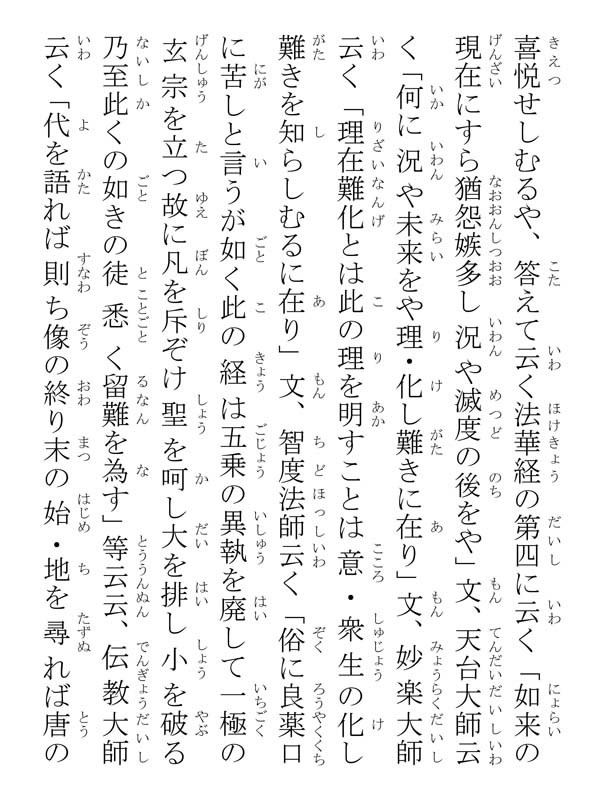 喜悦せしむるや、答えて云く法華経の第四に云く「如来の
現在にすら猶怨嫉多し況や滅度の後をや」文、天台大師云
く「何に況や未来をや理・化し難きに在り」文、妙楽大師
云く「理在難化とは此の理を明すことは意・衆生の化し
難きを知らしむるに在り」文、智度法師云く「俗に良薬口
に苦しと言うが如く此の経は五乗の異執を廃して一極の
玄宗を立つ故に凡を斥ぞけ聖を呵し大を排し小を破る
乃至此くの如きの徒悉く留難を為す」等云云、伝教大師
云く「代を語れば則ち像の終り末の始・地を尋れば唐の